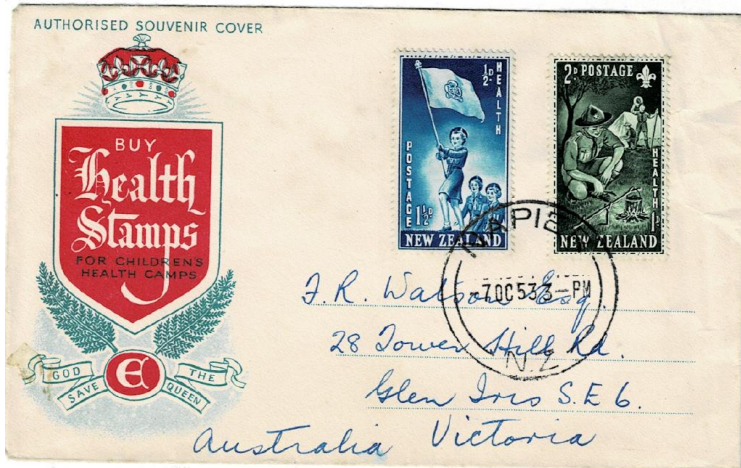 AUTHORISED SOUVENIR COVER
BUY
Health
Stamps
FOR CHILDREN'S
HEALTH CAMPS
GOD
SAVE
E
THE
QUEEN
½D
HEALTH
POSTAGE
1½D
NEW ZEALAND
2D POSTAGE
HEALTH
1D
NEW ZEALAND
NAPIER
-7 OC 53 3 - PM
N.Z
F.R. Watson Esq.
28 Tower Hill Rd.
Glen Iris S.E 6.
Australia Victoria